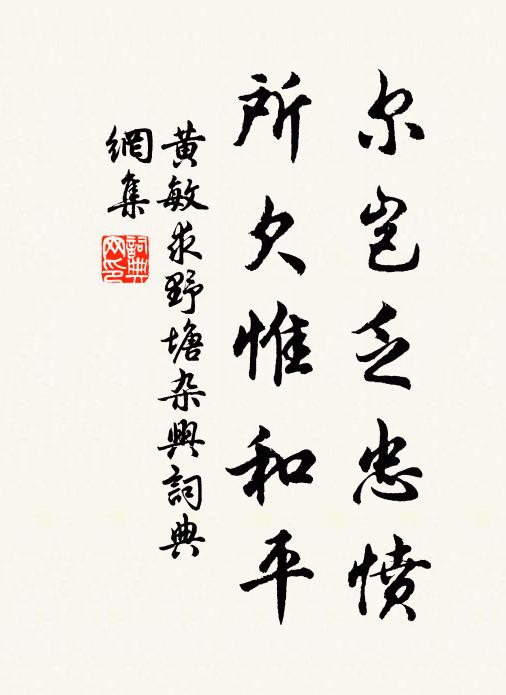 尔岂乏忠愤
所欠惟和平
黄敏求野塘杂興詞典
網集
詞典
网印